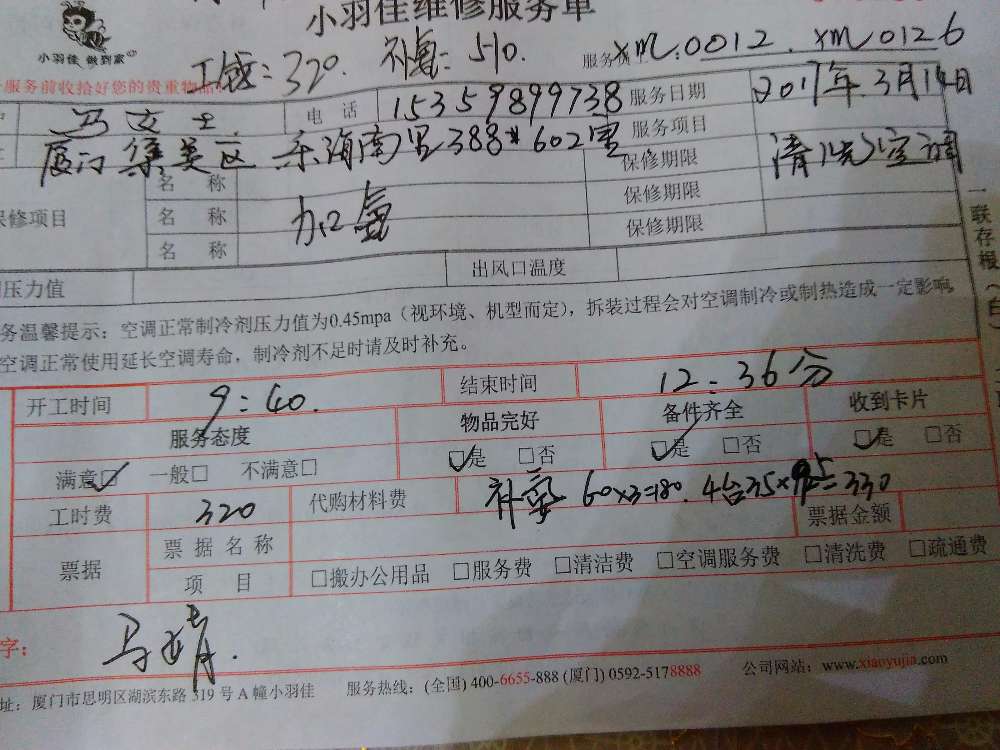 小羽佳维修服务单
小羽佳 做到家
工感: 320. 补氟: 510.
服务 XM:0012. XM0126
服务前收拾好您的贵重物品
马女士 电话 15359899738 服务日期 2017年3月14日
厦门集美区乐海南里388#602室 服务项目 清洗空调
名称 保修期限
保修项目 名称 加氟 保修期限
名称 保修期限
压力值 出风口温度
务温馨提示：空调正常制冷剂压力值为0.45mpa（视环境、机型而定），拆装过程会对空调制冷或制热造成一定影响
空调正常使用延长空调寿命，制冷剂不足时请及时补充。
一联存根（白）
开工时间 9:40. 结束时间 12:36分
服务态度 物品完好 备件齐全 收到卡片
满意☑ 一般□ 不满意□ ☑是 □否 ☑是 □否 ☑是 □否
工时费 320 代购材料费 补氟 60×3=180. 4台35× =330
票据金额
票据 票据名称
项目 □搬办公用品 □服务费 □清洁费 □空调服务费 □清洗费 □疏通费
字：
址：厦门市思明区湖滨东路319号A幢小羽佳 服务热线：(全国) 400-6655-888 (厦门) 0592-5178888 公司网站：www.xiaoyujia.com